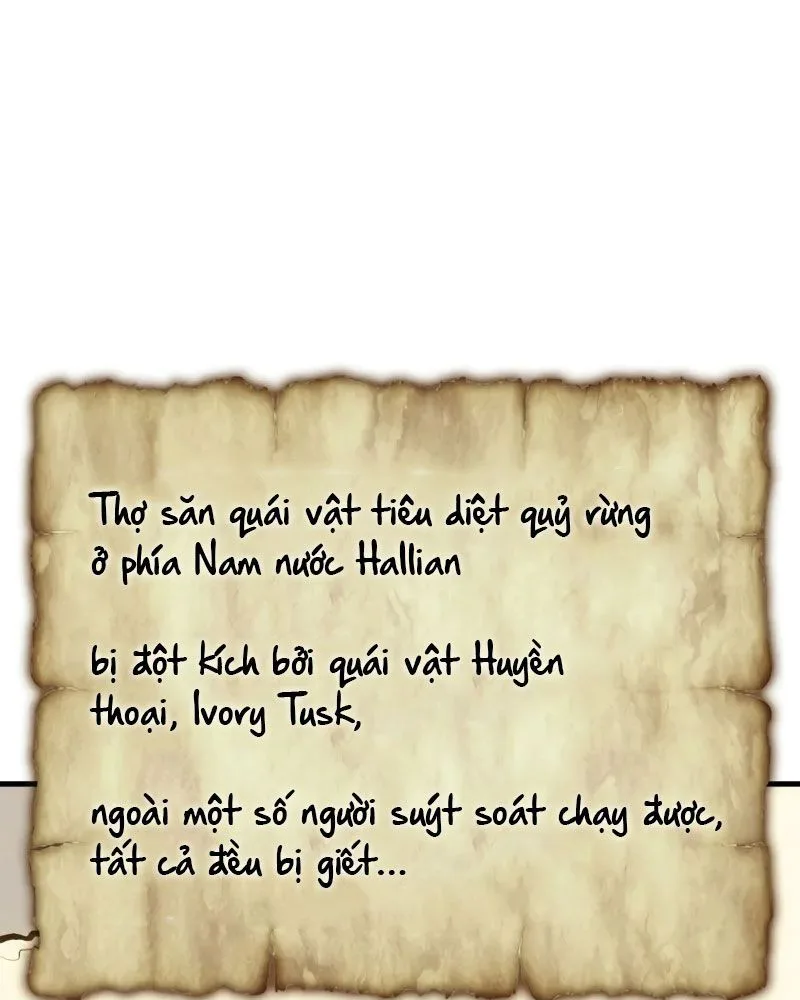 Thợ săn quái vật tiêu diệt quỷ rừng
ở phía Nam nước Hallian
bị đột kích bởi quái vật Huyền
thoại, Ivory Tusk,
ngoài một số người suýt soát chạy được,
tất cả đều bị giết...